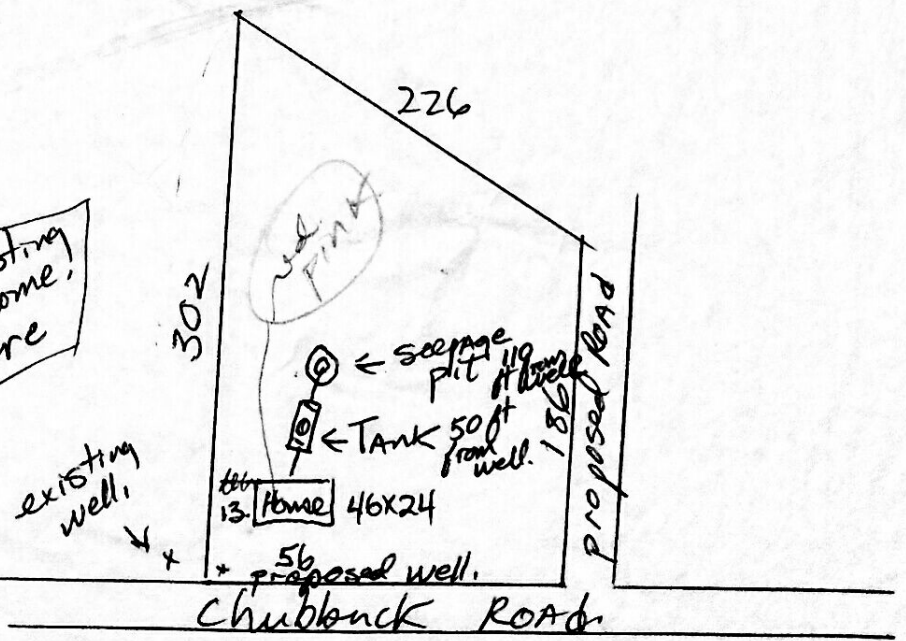 226
302
sting
ome,
re
← Seepage
pit 110
ft from
well
← TANK 50 ft
from
well.
186
proposed ROAd
existing
well,
13. House 46x24
56
proposed well.
Chubbuck ROAd